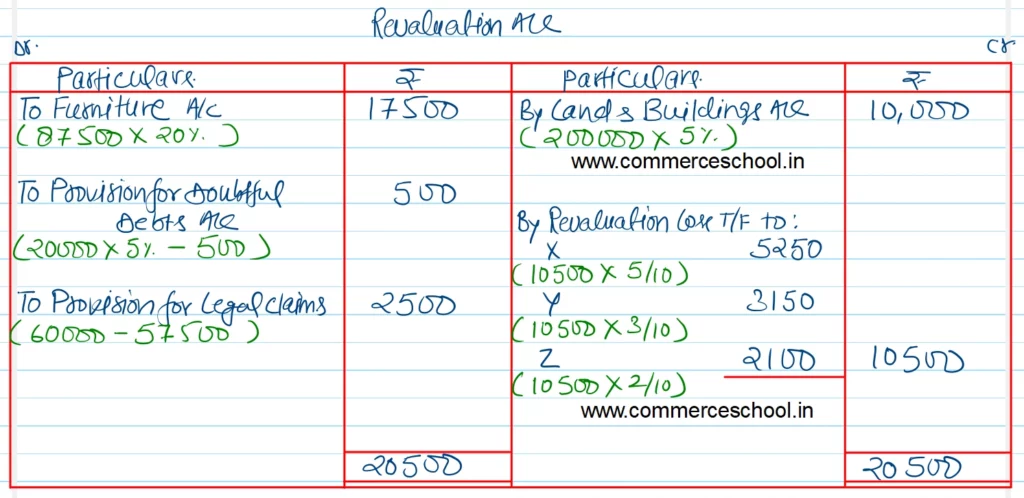 Revaluation A/c
Dr.
Cr
Particulars. ₹ Particulars. ₹
To Furniture A/c 17500 By Land & Buildings A/c 10,000
(87500 X 20%.) (200000 X 5%.)
www.commerceschool.in
To Provision for Doubtful 500
Debts A/c
By Revaluation Loss T/F to:
(20000 X 5% - 500) X 5250
(10500 X 5/10)
To Provision for Legal claims 2500 Y 3150
(60000 - 57500) (10500 X 3/10)
Z 2100 10500
(10500 X 2/10)
www.commerceschool.in
20500 20500